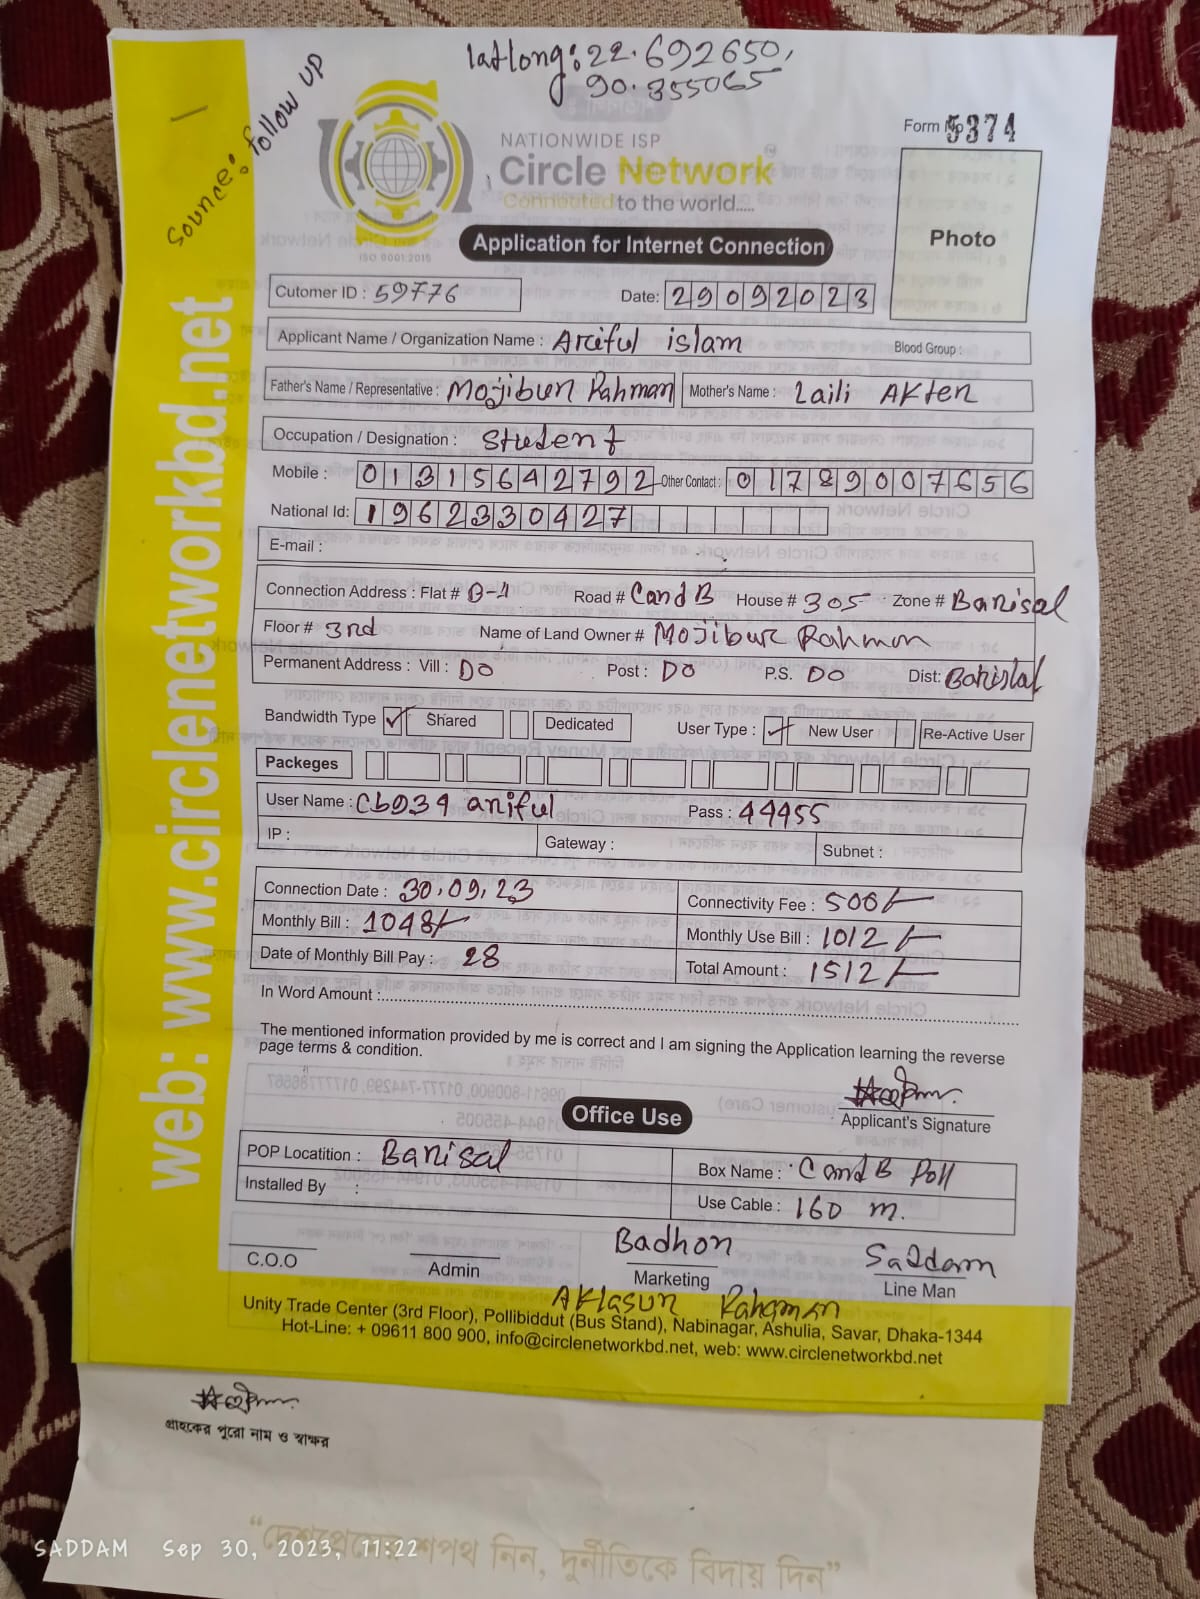 latlong: 22.692650,
90.355065
Source: follow up
NATIONWIDE ISP
Circle Network
Connected to the world.....
ISO 9001:2015
Form No 5374
Photo
Application for Internet Connection
Cutomer ID : 59776
Date: 29092023
Applicant Name / Organization Name : Ariful islam
Blood Group :
Father's Name / Representative : Mojibur Rahman Mother's Name : Laili Akter
Occupation / Designation : Student
Mobile : 01315642792 Other Contact : 01789007656
National Id: 1962330427
E-mail :
Connection Address : Flat # B-1 Road # C and B House # 305 Zone # Barisal
Floor # 3rd Name of Land Owner # Mojibur Rahman
Permanent Address : Vill : DO Post : DO P.S. DO Dist: Barishal
Bandwidth Type ✓ Shared Dedicated User Type : ✓ New User Re-Active User
Packeges
User Name : Cb034 ariful Pass : 44455
IP : Gateway : Subnet :
Connection Date : 30.09.23 Connectivity Fee : 500/-
Monthly Bill : 1048/- Monthly Use Bill : 1012/-
Date of Monthly Bill Pay : 28 Total Amount : 1512/-
In Word Amount :
The mentioned information provided by me is correct and I am signing the Application learning the reverse
page terms & condition.
Applicant's Signature
Office Use
POP Locatition : Barisal Box Name : C and B Poll
Installed By : Use Cable : 160 m.
Badhon Saddam
C.O.O Admin Marketing Line Man
Aklasur Rahaman
Unity Trade Center (3rd Floor), Pollibiddut (Bus Stand), Nabinagar, Ashulia, Savar, Dhaka-1344
Hot-Line: + 09611 800 900, info@circlenetworkbd.net, web: www.circlenetworkbd.net
web: www.circlenetworkbd.net
গ্রাহকের পুরো নাম ও স্বাক্ষর
“দেশপ্রেমের শপথ নিন, দুর্নীতিকে বিদায় দিন”
SADDAM Sep 30, 2023, 11:22